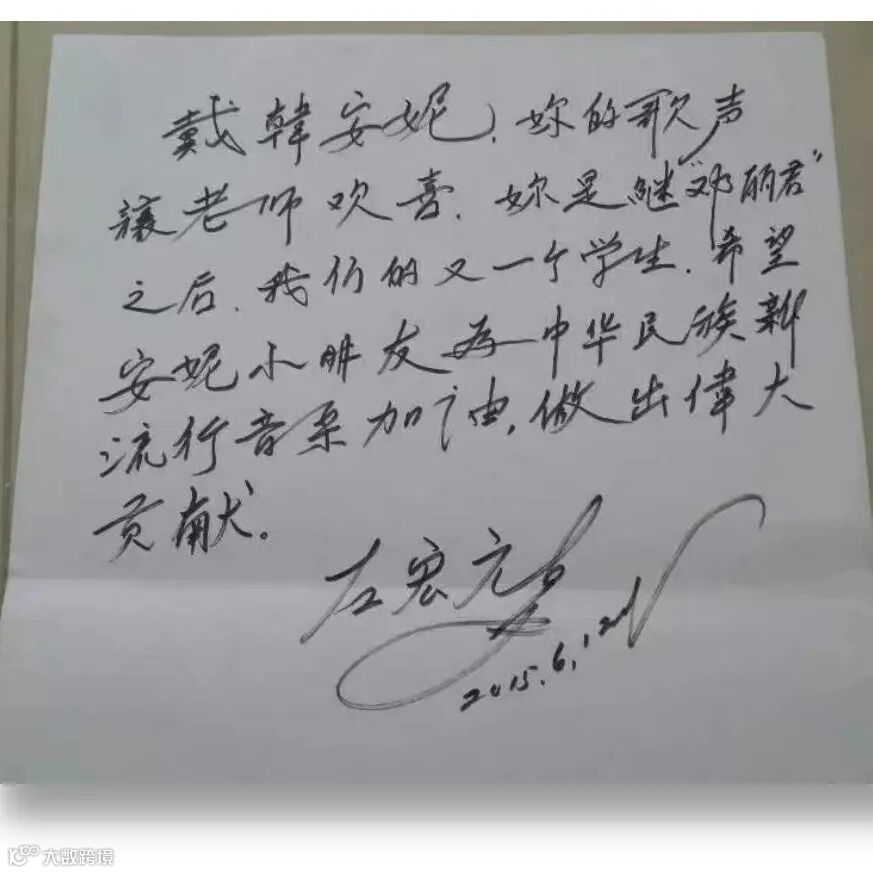 戴韓安妮，妳的歌声
讓老师欢喜．妳是継“邓丽君”
之后．我们的又一个学生．希望
安妮小朋友为中华民族新
流行音乐加油，做出偉大
贡献。
左宏元
2015.6.1
大数跨境